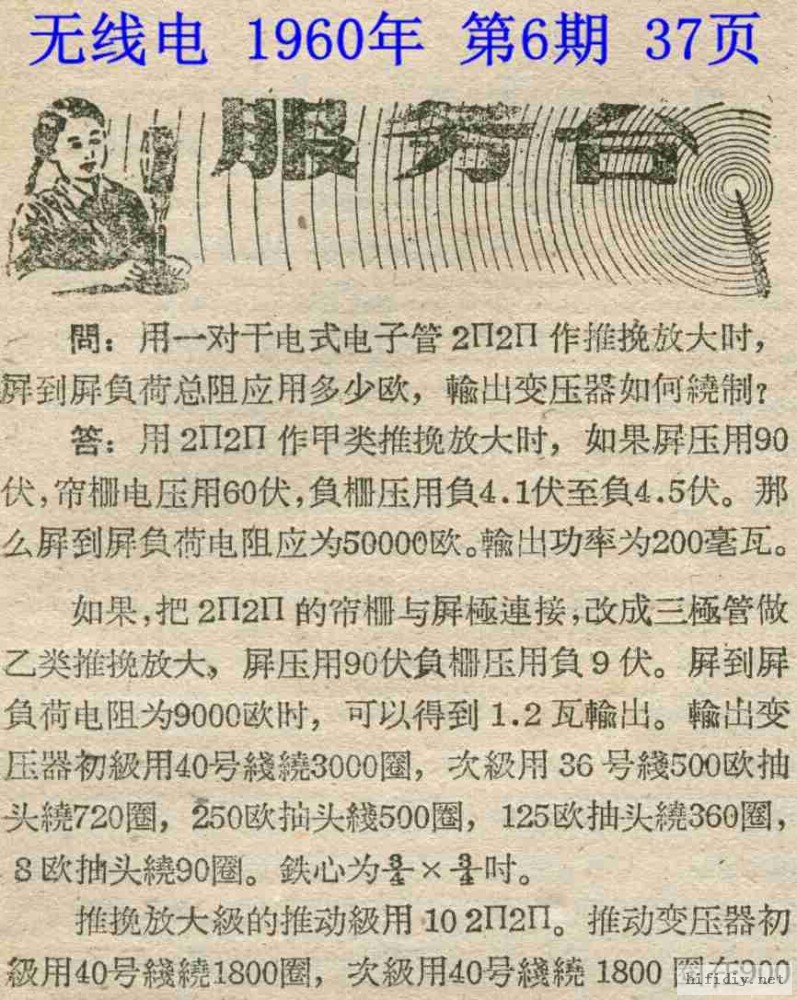 无线电 1960年 第6期 37页
服务台
問：用一对干电式电子管 2П2П 作推挽放大时，
屏到屏負荷总阻应用多少欧，輸出变压器如何繞制？
答：用 2П2П 作甲类推挽放大时，如果屏压用90
伏，帘栅电压用60伏，負栅压用負4.1伏至負4.5伏。那
么屏到屏負荷电阻应为50000欧。輸出功率为200毫瓦。
如果，把 2П2П 的帘栅与屏極連接，改成三極管做
乙类推挽放大，屏压用90伏負栅压用負 9 伏。屏到屏
負荷电阻为9000欧时，可以得到 1.2 瓦輸出。輸出变
压器初級用40号綫繞3000圈，次級用 36 号綫500欧抽
头繞720圈，250欧抽头綫500圈，125欧抽头繞360圈，
8 欧抽头繞90圈。鉄心为¾×¾吋。
推挽放大級的推动級用 10 2П2П。推动变压器初
級用40号綫繞1800圈，次級用40号綫繞 1800 圈在900
hifidiy.net